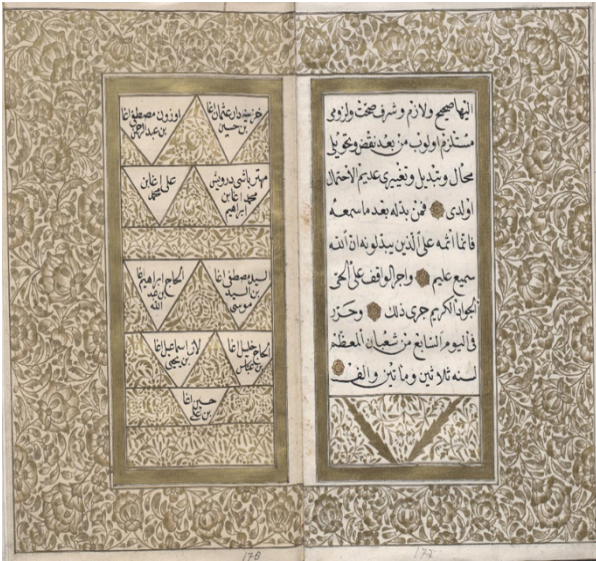 اليها صحيح ولازم وشرف صحت ولزومى
مستلزم اولوب من بعد نقض وتحويلى
محال وتبديل وتغييرى عديم الاحتمال
اولدى فمن بدله بعد ما سمعه
فانما اثمه على الذين يبدلونه ان الله
سميع عليم واجر الواقف على الحى
الجواد الكريم جرى ذلك وحرر
فى اليوم السابع من شعبان المعظم
لسنه ثلاثين ومائتين والف
177
خزينه دار عثمان اغا
بن حسين
اوزون مصطفى اغا
بن عبد الرحمن
مهتر باشى درويش
محمد اغا بن
ابراهيم
على اغا بن
محمد
السيد مصطفى اغا
بن السيد
موسى
الحاج ابراهيم اغا
بن عبد
الله
الحاج خليل اغا
بن
لاز اسماعيل اغا
بن يحيى
حسن اغا
بن على
178